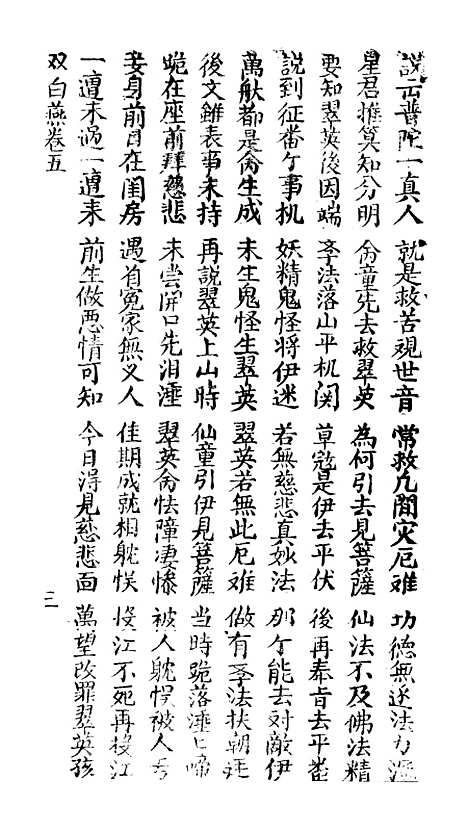 說正普陀一真人 就是救苦覌世音 常救凡間灾厄难 功德無边法力深
星君推算知分明 命童先去救翠英 為何引去見菩薩 仙法不及佛法精
要知翠英後因端 斈法落山平机関 草寇是伊去平伏 後再奉旨去平畨
說到征畨个事机 妖精鬼怪将伊迷 若無慈悲真妙法 那个能去对敵伊
萬般都是命生成 未生鬼怪生翠英 翠英若無此厄难 做有斈法扶朝廷
後文虽表事未持 再說翠英上山時 仙童引伊見菩薩 当時跪落淚上啼
跪在座前拜慈悲 未尝開口先泪淋 翠英命怯障凄惨 被人躭悮被人
妾身前日在闺房 遇着冤家無义人 佳期成就相躭悮 投江不死再投江
一遭未過一遭来 前生做恶情可知 今日得見慈悲面 萬望改罪翠英孩
双白燕卷五 三